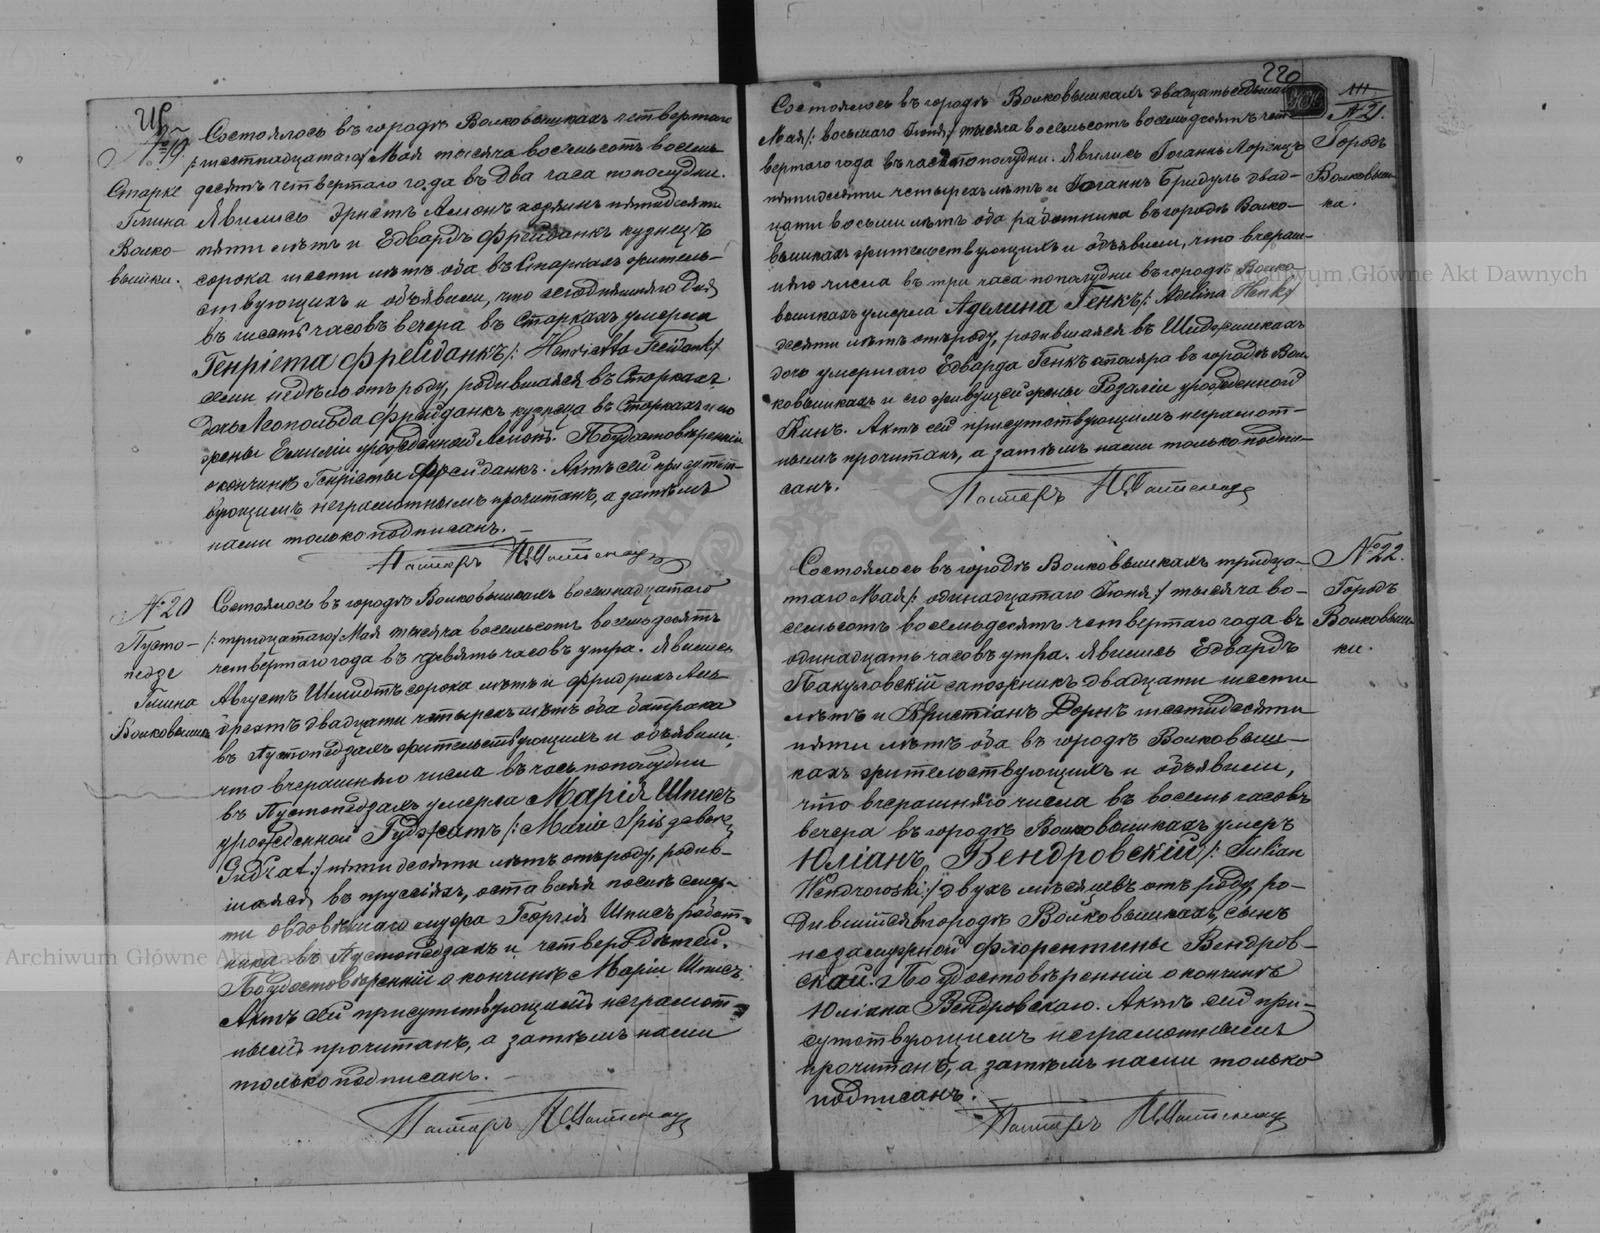 № 19.
Старке
Гмина
Волко-
вышки.
Состоялось въ городѣ Волковышкахъ четвертаго
/:шестнадцатаго:/ Мая тысяча восемьсотъ восемь-
десятъ четвертаго года въ два часа пополудни.
Явились Эрнстъ Асмонъ хозяинъ пятидесяти
пяти лѣтъ и Едвардъ Фрейданкъ кузнецъ
сорока шести лѣтъ оба въ Старкахъ житель-
ствующихъ и объявили, что сегодняшняго дня
въ шесть часовъ вечера въ Старкахъ умерла
Генріета Фрейданкъ /: Henrietta Freidank:/
семи недѣль отъ роду, родившаяся въ Старкахъ
дочь Леопольда Фрейданкъ кузнеца въ Старкахъ и его
жены Емиліи урожденной Асмонъ. По удостовѣреніи
о кончинѣ Генріеты Фрейданкъ. Актъ сей присутст-
вующимъ неграмотнымъ прочитанъ, а затѣмъ
нами только подписанъ.
Пасторъ
№ 20
Пусто-
педзе
Гмина
Волковышки
Состоялось въ городѣ Волковышкахъ восемнадцатаго
/: тридцатаго:/ Мая тысяча восемьсотъ восемьдесятъ
четвертаго года въ девять часовъ утра. Явились
Августъ Шмидтъ сорока лѣтъ и Фридрихъ Ане-
брехтъ двадцати четырехъ лѣтъ оба батрака
въ Пустопедзахъ жительствующихъ и объявили,
что вчерашняго числа въ часъ пополудни
въ Пустопедзахъ умерла Марія Шписъ
урожденной Гуджатъ /: Maria Spis gebor.
Gudžat:/ пяти десяти лѣтъ отъ роду, родив-
шаяся въ Пруссіяхъ, оставивъ послѣ смер-
ти овдовѣвшаго мужа Георгія Шписъ работ-
ника въ Пустопедзахъ и четверо дѣтей.
По удостовѣреніи о кончинѣ Маріи Шписъ
Актъ сей присутствующимъ неграмот-
нымъ прочитанъ, а затѣмъ нами
только подписанъ.
Пасторъ
220
Состоялось въ городѣ Волковышкахъ двадцать седьмаго
Мая /: восьмаго Іюня:/ тысяча восемьсотъ восемьдесятъ чет-
вертаго года въ часъ пополудни. Явились Іоганнъ Лоренцъ
пятидесяти четырехъ лѣтъ и Іоганнъ Бридуль двад-
цати восьми лѣтъ оба работника въ городѣ Волко-
вышкахъ жительствующихъ и объявили, что вчераш-
няго числа въ три часа пополудни въ городѣ Волко-
вышкахъ умерла Аделина Генкъ /: Adelina Henk:/
десяти лѣтъ отъ роду, родившаяся въ
дочь умершаго Едварда Генкъ столяра въ городѣ Вол-
ковышкахъ и его живущей жены Розаліи урожденной
Кинъ. Актъ сей присутствующимъ неграмот-
нымъ прочитанъ, а затѣмъ нами только подпи-
санъ.
Пасторъ
№ 21.
Городъ
Волковыш-
ки.
Состоялось въ городѣ Волковышкахъ тридца-
таго Мая /: одинадцатаго Іюня:/ тысяча во-
семьсотъ восемьдесятъ четвертаго года въ
одинадцать часовъ утра. Явились Едвардъ
Пакуловскій сапожникъ двадцати шести
лѣтъ и Христіанъ Дорнъ шестидесяти
пяти лѣтъ оба въ городѣ Волковыш-
кахъ жительствующихъ и объявили,
что вчерашняго числа въ восемь часовъ
вечера въ городѣ Волковышкахъ умеръ
Юліанъ Вендровскій /: Julian
Wendrowski:/ двухъ мѣсяцевъ отъ роду, ро-
дившійся въ городѣ Волковышкахъ, сынъ
незамужной Флорентины Вендров-
ской. По удостовѣреніи о кончинѣ
Юліана Вендровскаго. Актъ сей при-
сутствующимъ неграмотнымъ
прочитанъ, а затѣмъ нами только
подписанъ.
Пасторъ
№ 22.
Городъ
Волковыш-
ки.
Archiwum Główne Akt Dawnych
Archiwum Główne Akt Dawnych